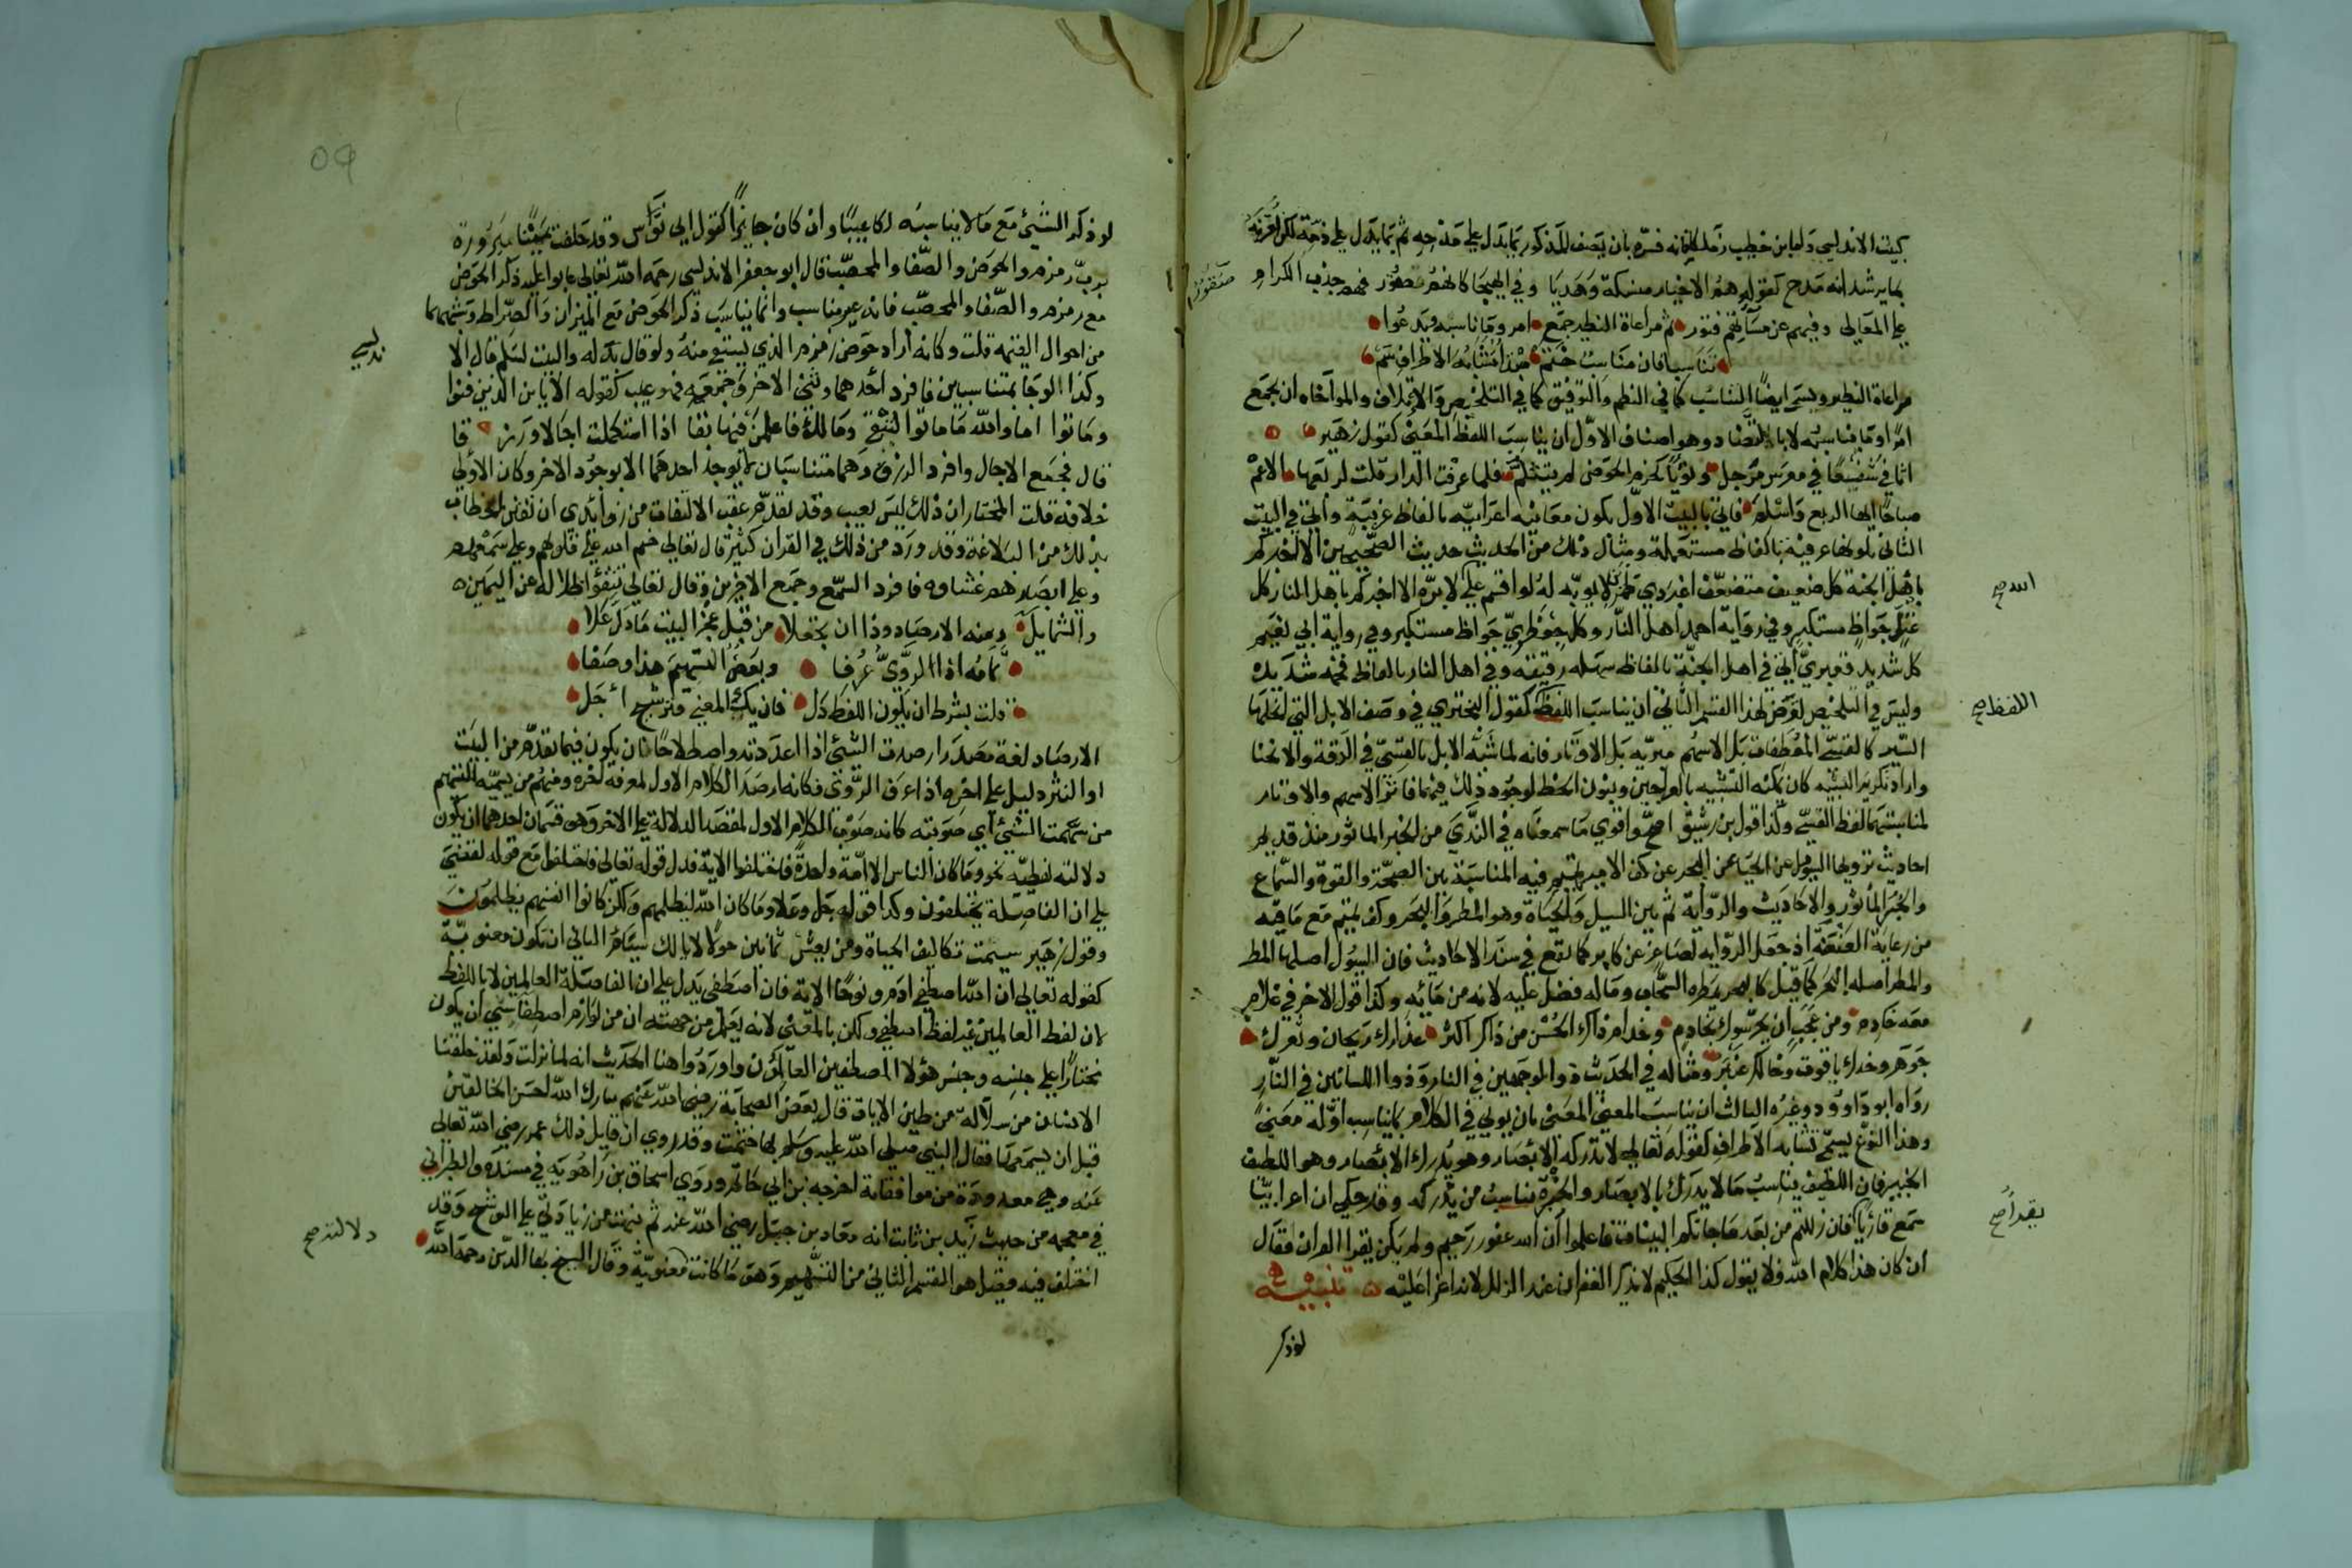 كيت الاندلسي ولها بن خطيب زملكانه فسره بان يصف المذكور بما يدل على مدحه ثم بما يدل على ذمه لكن لقرنه
بما يرشد انه مدح كقوله هم الاخيار منسكة وهديا وفي الهيجا كانهم صقور فهم جذب الكرام
صقور
على المعالي وفيهم عن مسآلهم فتور ثم مراعاة النظير جمع امر وما ناسبه ويدعوا
تناسبا فان مناسب ختم هذا تشابه الاطراف سم
مراعاة النظير ويسمى ايضا التناسب كما في النظم والتوفيق كما في التلخيص والائتلاف والمواخاه ان يجمع
امرا وما يناسبه لا بالتضاد وهو اصناف الاول ان يناسب اللفظ المعنى كقول زهير
اثافي سفعا في معرس مرجل ونؤيا كجذم الحوض لم يتثلم فلما عرفت الدار قلت لربعها الا عم
صباحا ايها الربع واسلم فاتى بالبيت الاول لكون معانيه اعرابيه بالفاظ غريبة واتى في البيت
الثاني لكونها عرفية بالفاظ مستعملة ومثال ذلك من الحديث حديث الصحيحين الا اخبركم
باهل الجنه كل ضعيف متضعف اغبر ذي طمرين لا يوبه له لو اقسم على الله لابره الا اخبركم باهل النار كل
الله صح
عتل جواظ مستكبر وفي رواية احمد اهل النار وكل جعظري جواظ مستكبر وفي رواية ابي نعيم
كل شديد قعبري اتى في اهل الجنة بالفاظ سهله رقيقه وفي اهل النار بالفاظ فخمه شديده
وليس في التلخيص تعرض لهذا القسم الثاني ان يناسب اللفظ كقول البحتري في وصف الابل التي انحلها
اللفظ صح
السير كالقسي المعطفات بل الاسهم مبريه بل الاوتار فانه لما شبه الابل بالقسي في الرقة والانحنا
واراد تكرير التشبيه كان يمكنه التشبيه بالعراجين وبنون الخط لوجود ذلك فيهما فاثر الاسهم والاوتار
لمناسبتهما لفظ القسي وكذا قول بن رشيق اصح واقوي ما سمعناه في الندى من الخبر الماثور منذ قديم
احاديث ترويها السيول عن الحيا عن البحر عن كف الامير تميم فيه المناسبة بين الصحة والقوة والسماع
والخبر الماثور والاحاديث والرواية ثم بين السيل والحياة وهو المطر والبحر وكف تميم مع ما فيه
من رعاية العنعنة اذ جعل الرواية لصاغر عن كابر كما يقع في سند الاحاديث فان السيول اصلها المطر
والمطر اصله البحر كما قيل كالبحر يمطره السحاب وما له فضل عليه لانه من مائه وكذا قول الاخر في غلام
معه خادم ومن عجب ان يحرسوك بخادم وخدام ذاك الحسن من ذاكر اكثر عذارك ريحان وثغرك
جوهر وخدك ياقوت وخالك عنبر ومثاله في الحديث ذو الوجهين في النار وذوا اللسانين في النار
رواه ابو داود وغيره الثالث ان يناسب المعنى المعنى بان يولي في الكلام بما يناسب اوله معنى
وهذا النوع يسمى تشابه الاطراف كقوله تعالى لا تدركه الابصار وهو يدرك الابصار وهو اللطيف
الخبير فان اللطيف يناسب ما لا يدرك بالابصار والخبرة تناسب من يدركه وقد حكي ان اعرابيا
سمع قاريا فان زللتم من بعد ما جاتكم البينات فاعلموا ان الله غفور رحيم ولم يكن يقرا القران فقال
يقرأ صح
ان كان هذا كلام الله فلا يقول كذا الحكيم لا يذكر الغفران عند الزلل لانه اغرا عليه تنبيه
لو ذكر
٥٩
لو ذكر الشيئ مع ما لا يناسبه كان عيبا وان كان جايزا كقول ابي نواس وقد حلفت يمينا مبرورة
برب زمزم والحوض والصفا والمحصب قال ابو جعفر الاندلسي رحمه الله تعالى عابوا عليه ذكر الحوض
مع زمزم والصفا والمحصب فانه غير مناسب وانما يناسب ذكر الحوض مع الميزان والصراط وشبههما
من احوال القيمه قلت وكانه اراد حوض زمزم الذي يستقى منه ولو قال بدله والبيت لسلم قال الا
ندلسي
وكذا لو جا بمتناسبين فافرد احدهما وثنى الاخر او جمعه فهو عيب كقوله الا يا بن الذين فنوا
وماتوا اما والله ما ماتوا لتبقى ومالك فاعلمن فيها بقا اذا استكملت اجالا ورزقا
قال فجمع الاجال وافرد الرزق وهما متناسبان لم يوجد احدهما الا بوجود الاخر وكان الاولى
خلافه قلت المختار ان ذلك ليس بعيب وقد تقدم عقب الالتفات من زوائدي ان تفنن الخطاب
بذلك من البلاغة وقد ورد من ذلك في القران كثير قال تعالى ختم الله على قلوبهم وعلى سمعهم
وعلى ابصارهم غشاوه فافرد السمع وجمع الاخرين وقال تعالى تتفيؤا ظلاله عن اليمين
والشمايل ومنه الارصاد وذا ان يجعلا من قبل عجز البيت ما دل علا
تمامه اذا الروي عرفا وبعض التسهيم هذا وصفا
قلت بشرط ان يكون اللفظ دل فان يك المعنى فترشيح اجل
الارصاد لغة مصدر ارصدت الشيئ اذا اعددته واصطلاحا ان يكون فيما تقدم من البيت
او النثر دليل على اخره اذا عرف الروي فكانه ارصد الكلام الاول لمعرفة اخره ومنهم من يسميه التسهيم
من سهمت الشيئ اي صوبته كانه صوب الكلام الاول لقصد الدلالة على الاخر وهو قسمان احدهما ان يكون
دلالته لفظيه نحو وما كان الناس الا امة واحدة فاختلفوا الاية فدل قوله تعالى فاختلفوا مع قوله لقضي
على ان الفاصلة يختلفون وكذا قوله جل وعلا وما كان الله ليظلمهم ولكن كانوا انفسهم يظلمون
وقول زهير سيمت تكاليف الحياة ومن يعش ثمانين حولا لا ابا لك يسام الثاني ان يكون معنوية
كقوله تعالى ان الله اصطفى ادم ونوحا الاية فان اصطفى يدل على ان الفاصلة العالمين لا باللفظ
لان لفظ العالمين غير لفظ اصطفى ولكن بالمعنى لانه يعلم من جهته ان من لوازم اصطفا شي ان يكون
مختارا على جنسه وجنس هؤلا المصطفين العالمون واوردوا هنا الحديث انه لما نزلت ولقد خلقنا
الانسان من سلالة من طين الاية قال بعض الصحابة رضي الله عنهم تبارك الله احسن الخالقين
قبل ان يسمعها فقال النبي صلى الله عليه وسلم بها ختمت وقد روي ان قايل ذلك عمر رضي الله تعالى
عنه وهي معدودة من موافقاته اخرجه بن ابي حاتم وروي اسحاق بن راهويه في مسنده والطبراني
في معجمه من حديث زيد بن ثابت انه معاذ بن جبل رضي الله عنه ثم نبهت من زيادتي على التوشيح وقد
دلالته صح
اختلف فيه فقيل هو القسم الثاني من التسهيم وهو ما كانت معنوية وقال الشيخ بها الدين رحمه الله